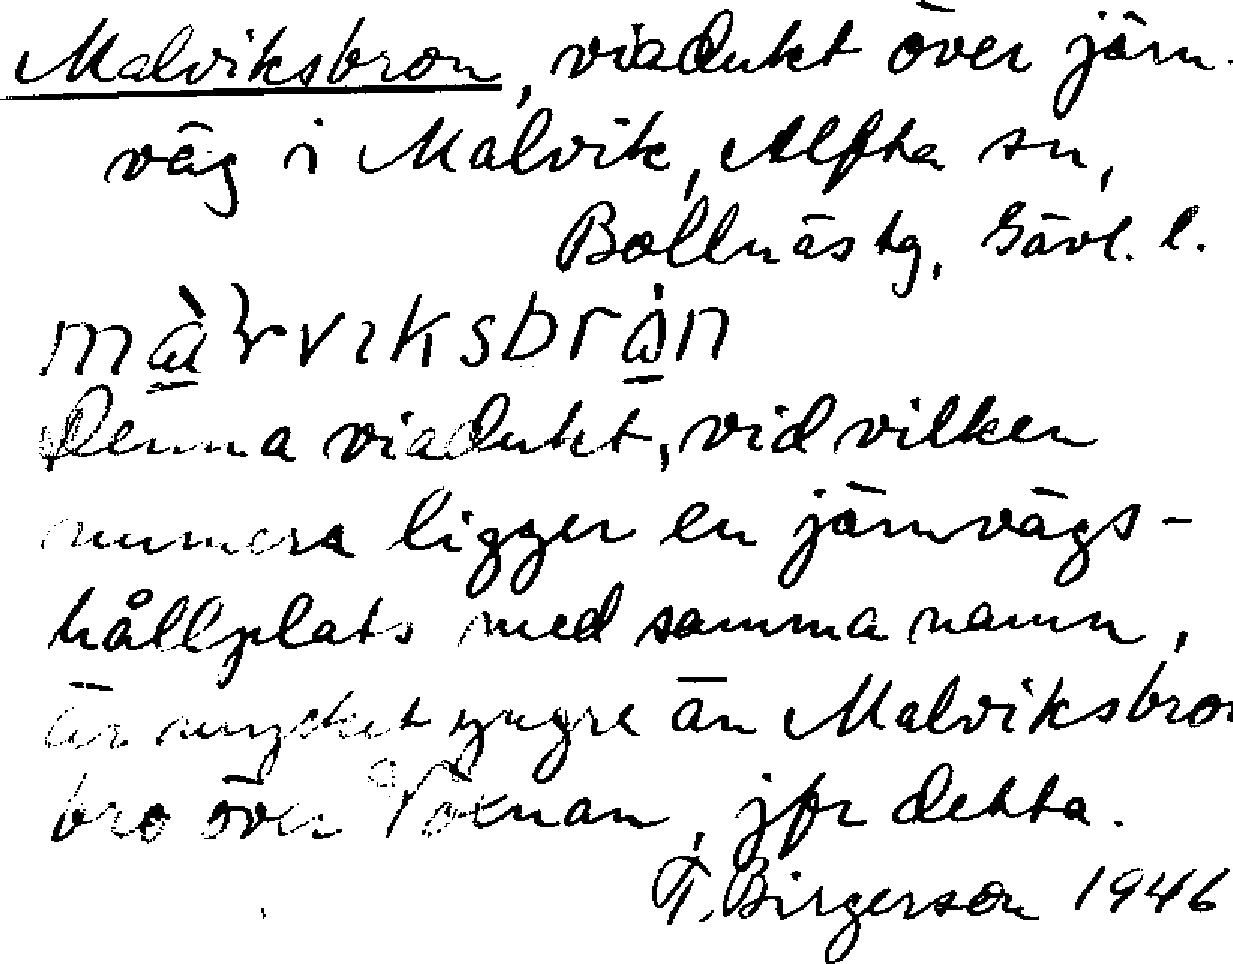 Malviksbron, viadukt över järn-
väg i Malvik, Alfta sn,
Bollnäs tg, Gävl. l.
Denna viadukt, vid vilken
numera ligger en järnvägs-
hållplats med samma namn,
är mycket yngre än Malviksbron
bro över Voxnan, jfr detta.
T. Birgerson 1946